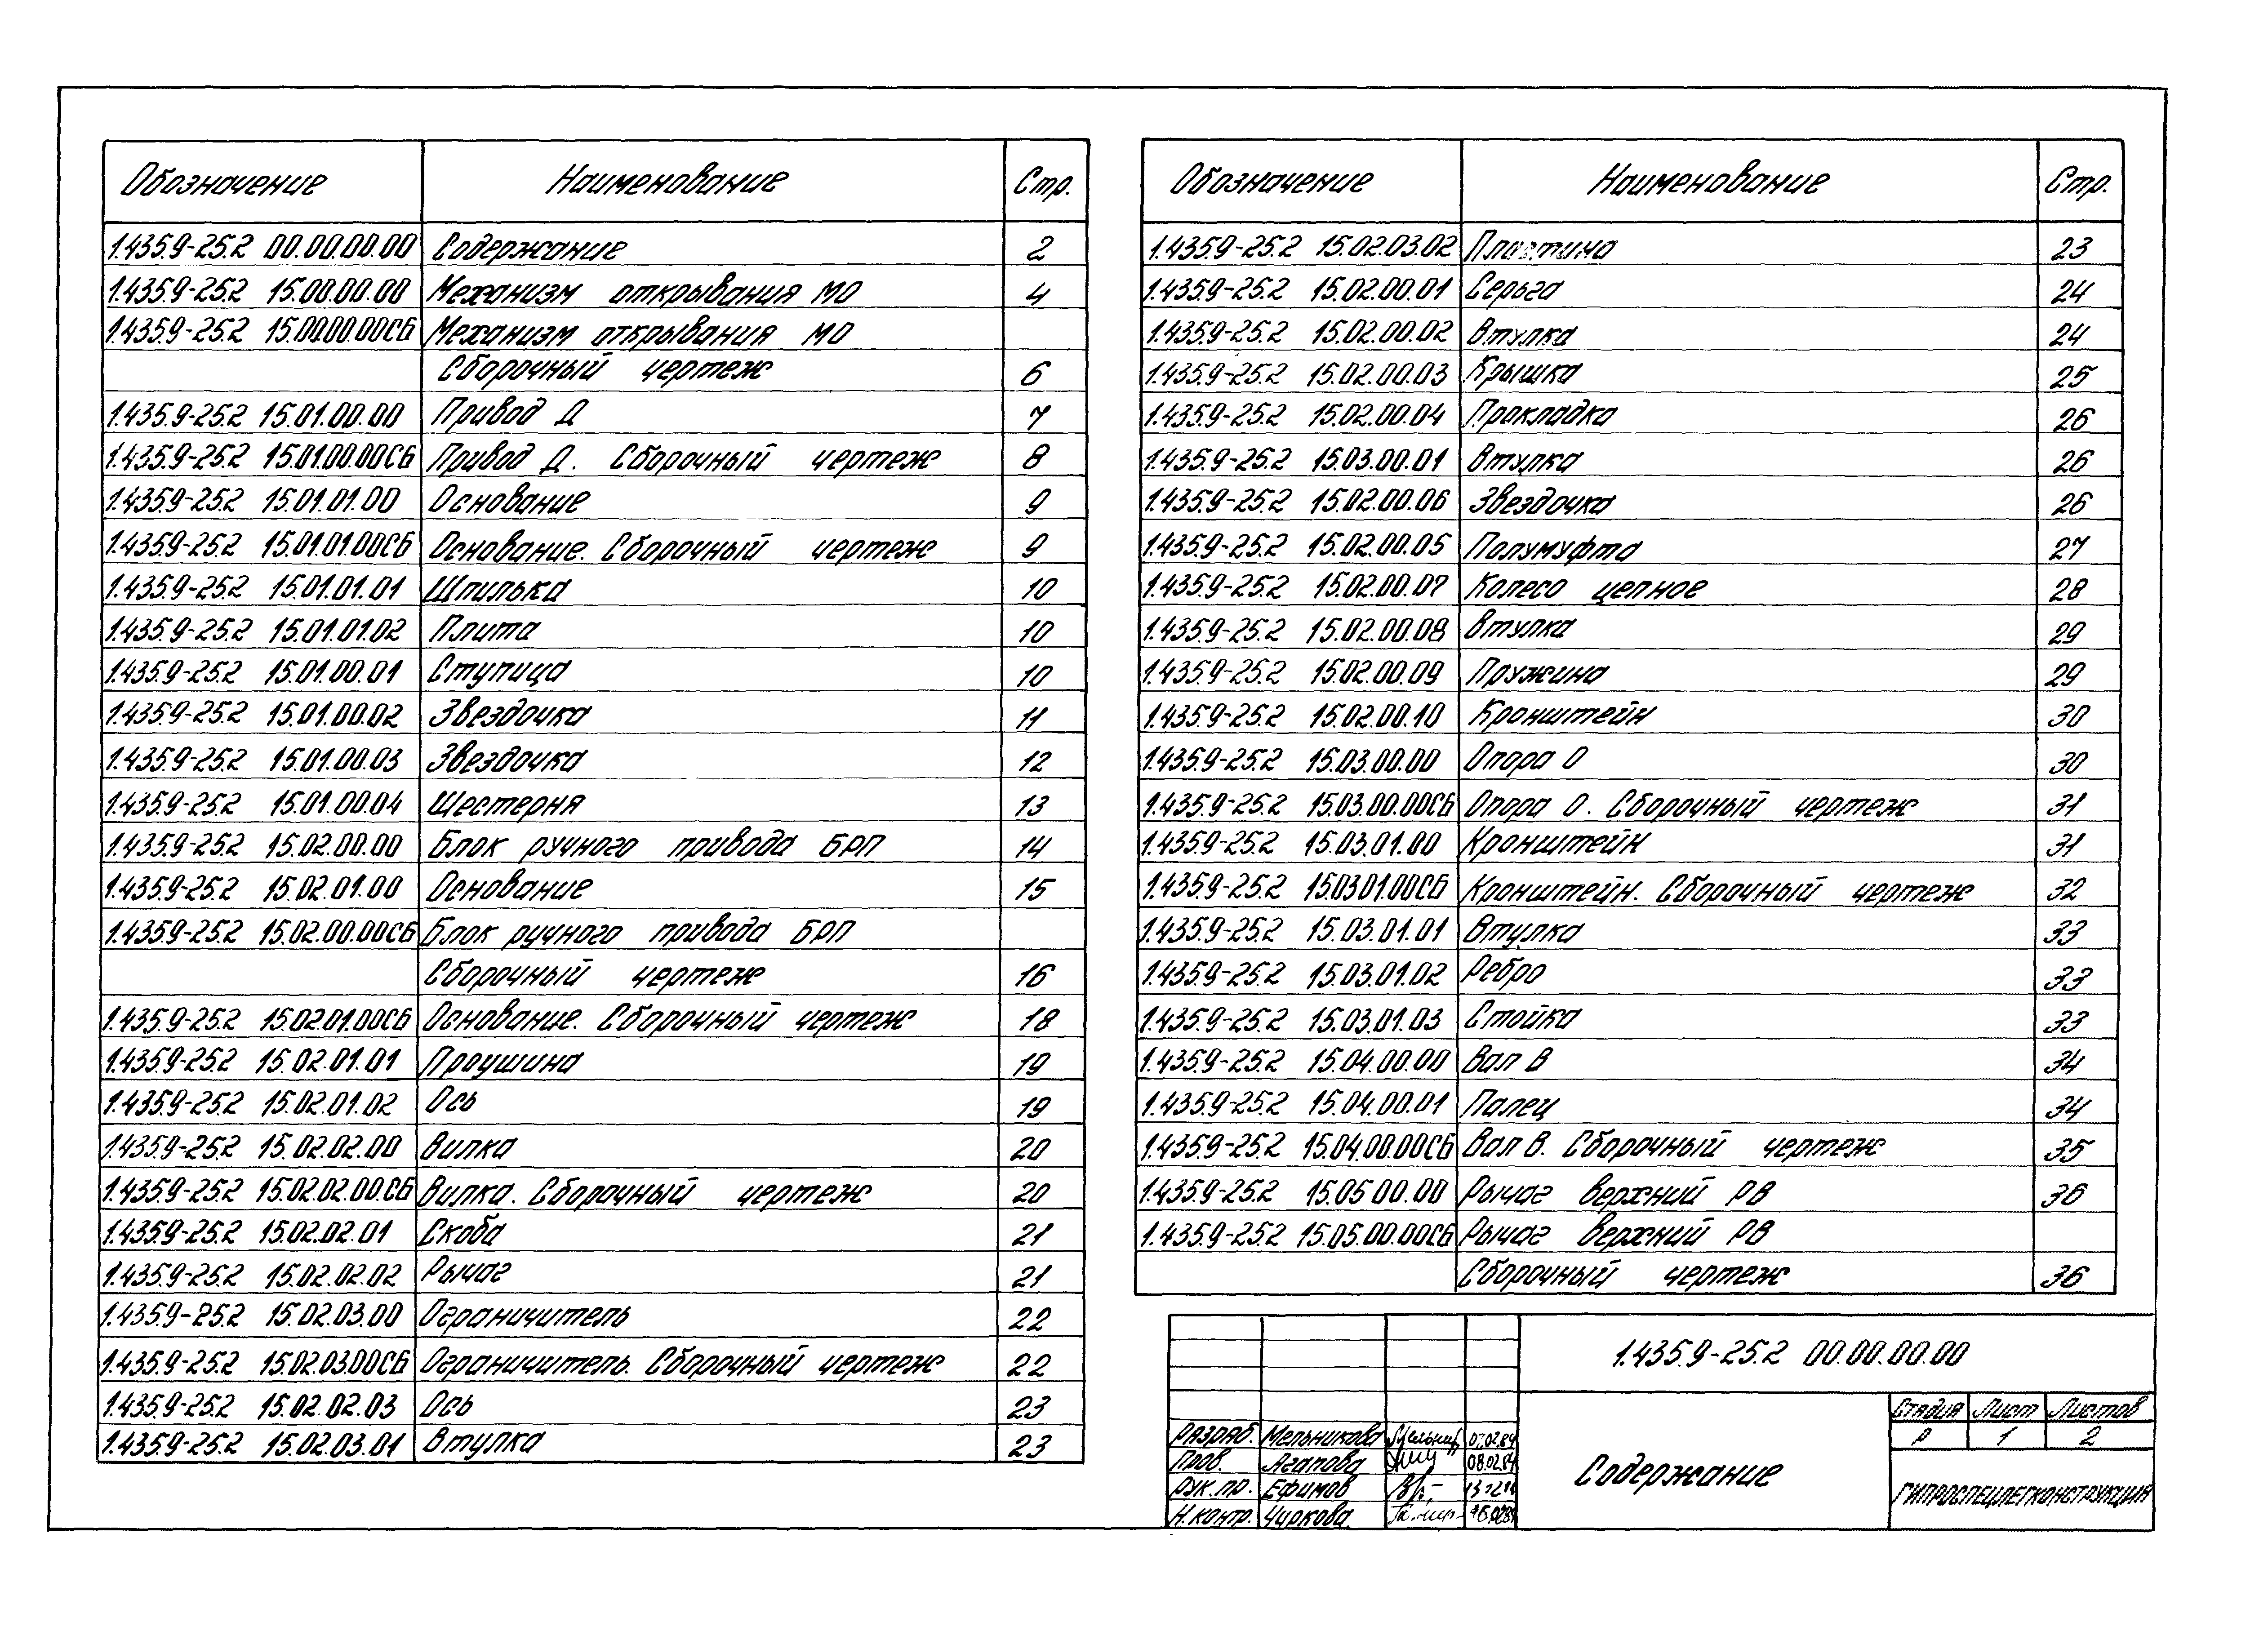 Обозначение Наименование Стр.
1.435.9-25.2 00.00.00.00 Содержание 2
1.435.9-25.2 15.00.00.00 Механизм открывания МО 4
1.435.9-25.2 15.00.00.00СБ Механизм открывания МО
Сборочный чертеж 6
1.435.9-25.2 15.01.00.00 Привод Д 7
1.435.9-25.2 15.01.00.00СБ Привод Д. Сборочный чертеж 8
1.435.9-25.2 15.01.01.00 Основание 9
1.435.9-25.2 15.01.01.00СБ Основание. Сборочный чертеж 9
1.435.9-25.2 15.01.01.01 Шпилька 10
1.435.9-25.2 15.01.01.02 Плита 10
1.435.9-25.2 15.01.00.01 Ступица 10
1.435.9-25.2 15.01.00.02 Звездочка 11
1.435.9-25.2 15.01.00.03 Звездочка 12
1.435.9-25.2 15.01.00.04 Шестерня 13
1.435.9-25.2 15.02.00.00 Блок ручного привода БРП 14
1.435.9-25.2 15.02.01.00 Основание 15
1.435.9-25.2 15.02.00.00СБ Блок ручного привода БРП
Сборочный чертеж 16
1.435.9-25.2 15.02.01.00СБ Основание. Сборочный чертеж 18
1.435.9-25.2 15.02.01.01 Проушина 19
1.435.9-25.2 15.02.01.02 Ось 19
1.435.9-25.2 15.02.02.00 Вилка 20
1.435.9-25.2 15.02.02.00.СБ Вилка. Сборочный чертеж 20
1.435.9-25.2 15.02.02.01 Скоба 21
1.435.9-25.2 15.02.02.02 Рычаг 21
1.435.9-25.2 15.02.03.00 Ограничитель 22
1.435.9-25.2 15.02.03.00СБ Ограничитель. Сборочный чертеж 22
1.435.9-25.2 15.02.02.03 Ось 23
1.435.9-25.2 15.02.03.01 Втулка 23
Обозначение Наименование Стр.
1.435.9-25.2 15.02.03.02 Пластина 23
1.435.9-25.2 15.02.00.01 Серьга 24
1.435.9-25.2 15.02.00.02 Втулка 24
1.435.9-25.2 15.02.00.03 Крышка 25
1.435.9-25.2 15.02.00.04 Прокладка 26
1.435.9-25.2 15.03.00.01 Втулка 26
1.435.9-25.2 15.02.00.06 Звездочка 26
1.435.9-25.2 15.02.00.05 Полумуфта 27
1.435.9-25.2 15.02.00.07 Колесо цепное 28
1.435.9-25.2 15.02.00.08 Втулка 29
1.435.9-25.2 15.02.00.09 Пружина 29
1.435.9-25.2 15.02.00.10 Кронштейн 30
1.435.9-25.2 15.03.00.00 Опора О 30
1.435.9-25.2 15.03.00.00СБ Опора О. Сборочный чертеж 31
1.435.9-25.2 15.03.01.00 Кронштейн 31
1.435.9-25.2 15.03.01.00СБ Кронштейн. Сборочный чертеж 32
1.435.9-25.2 15.03.01.01 Втулка 33
1.435.9-25.2 15.03.01.02 Ребро 33
1.435.9-25.2 15.03.01.03 Стойка 33
1.435.9-25.2 15.04.00.00 Вал В 34
1.435.9-25.2 15.04.00.01 Палец 34
1.435.9-25.2 15.04.00.00СБ Вал В. Сборочный чертеж 35
1.435.9-25.2 15.05.00.00 Рычаг верхний РВ 36
1.435.9-25.2 15.05.00.00СБ Рычаг верхний РВ
Сборочный чертеж 36
1.435.9-25.2 00.00.00.00
Разраб. Мельникова 07.02.84
Пров. Агапова 08.02.84
Рук.пр. Ефимов
Н.контр. Чиркова
Содержание
Стадия Лист Листов
Р 1 2
ГИПРОСПЕЦЛЕГКОНСТРУКЦИЯ